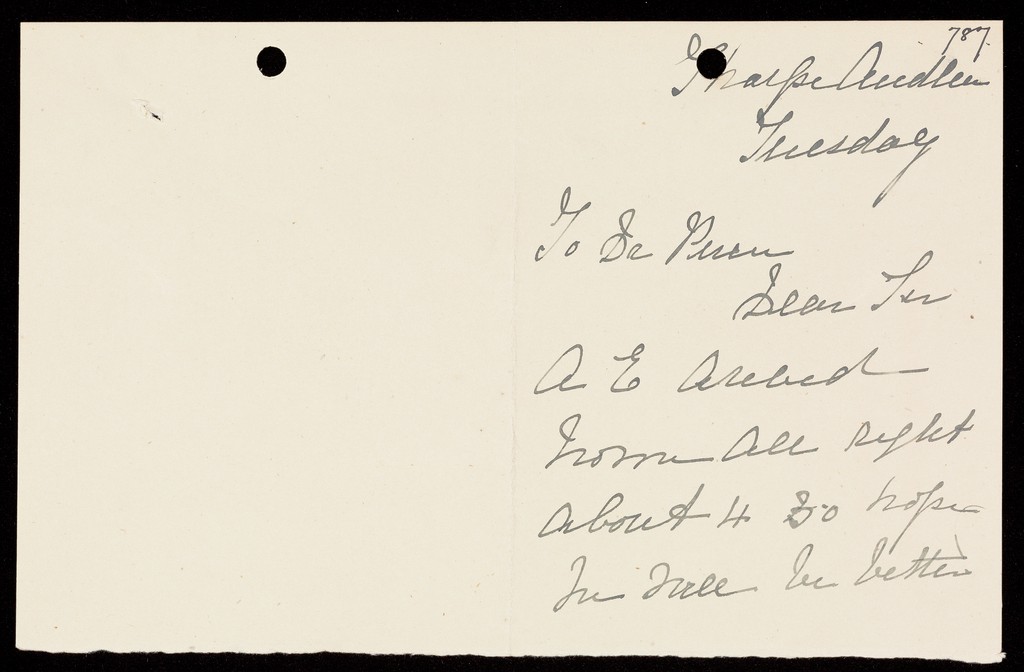 787.
Thorpe Audlin
Tuesday
To Dr
Dear Sir
A E Areived
home all right
about 4 30 hope
he will be better